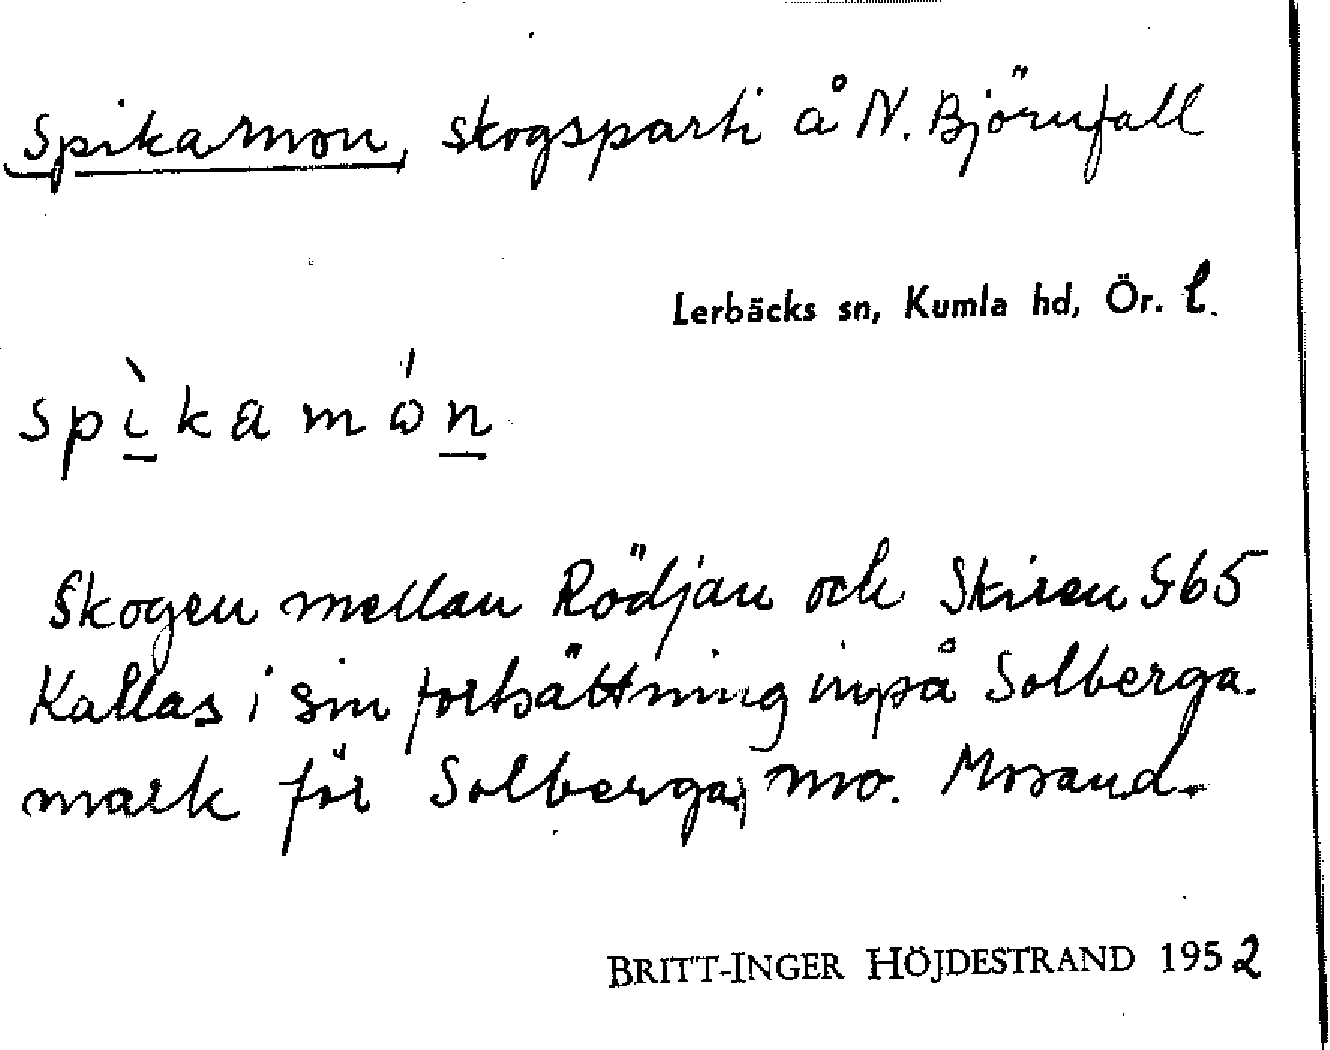 Spikamon, skogsparti å N. Björnfall
Lerbäcks sn, Kumla hd, Ör. l.
spìkamón
Skogen mellan Rödjan och Skiren S65
Kallas i sin fortsättning inpå Solberga
mark för Solberga mo. Mosand.
BRITT-INGER HÖJDESTRAND 1952